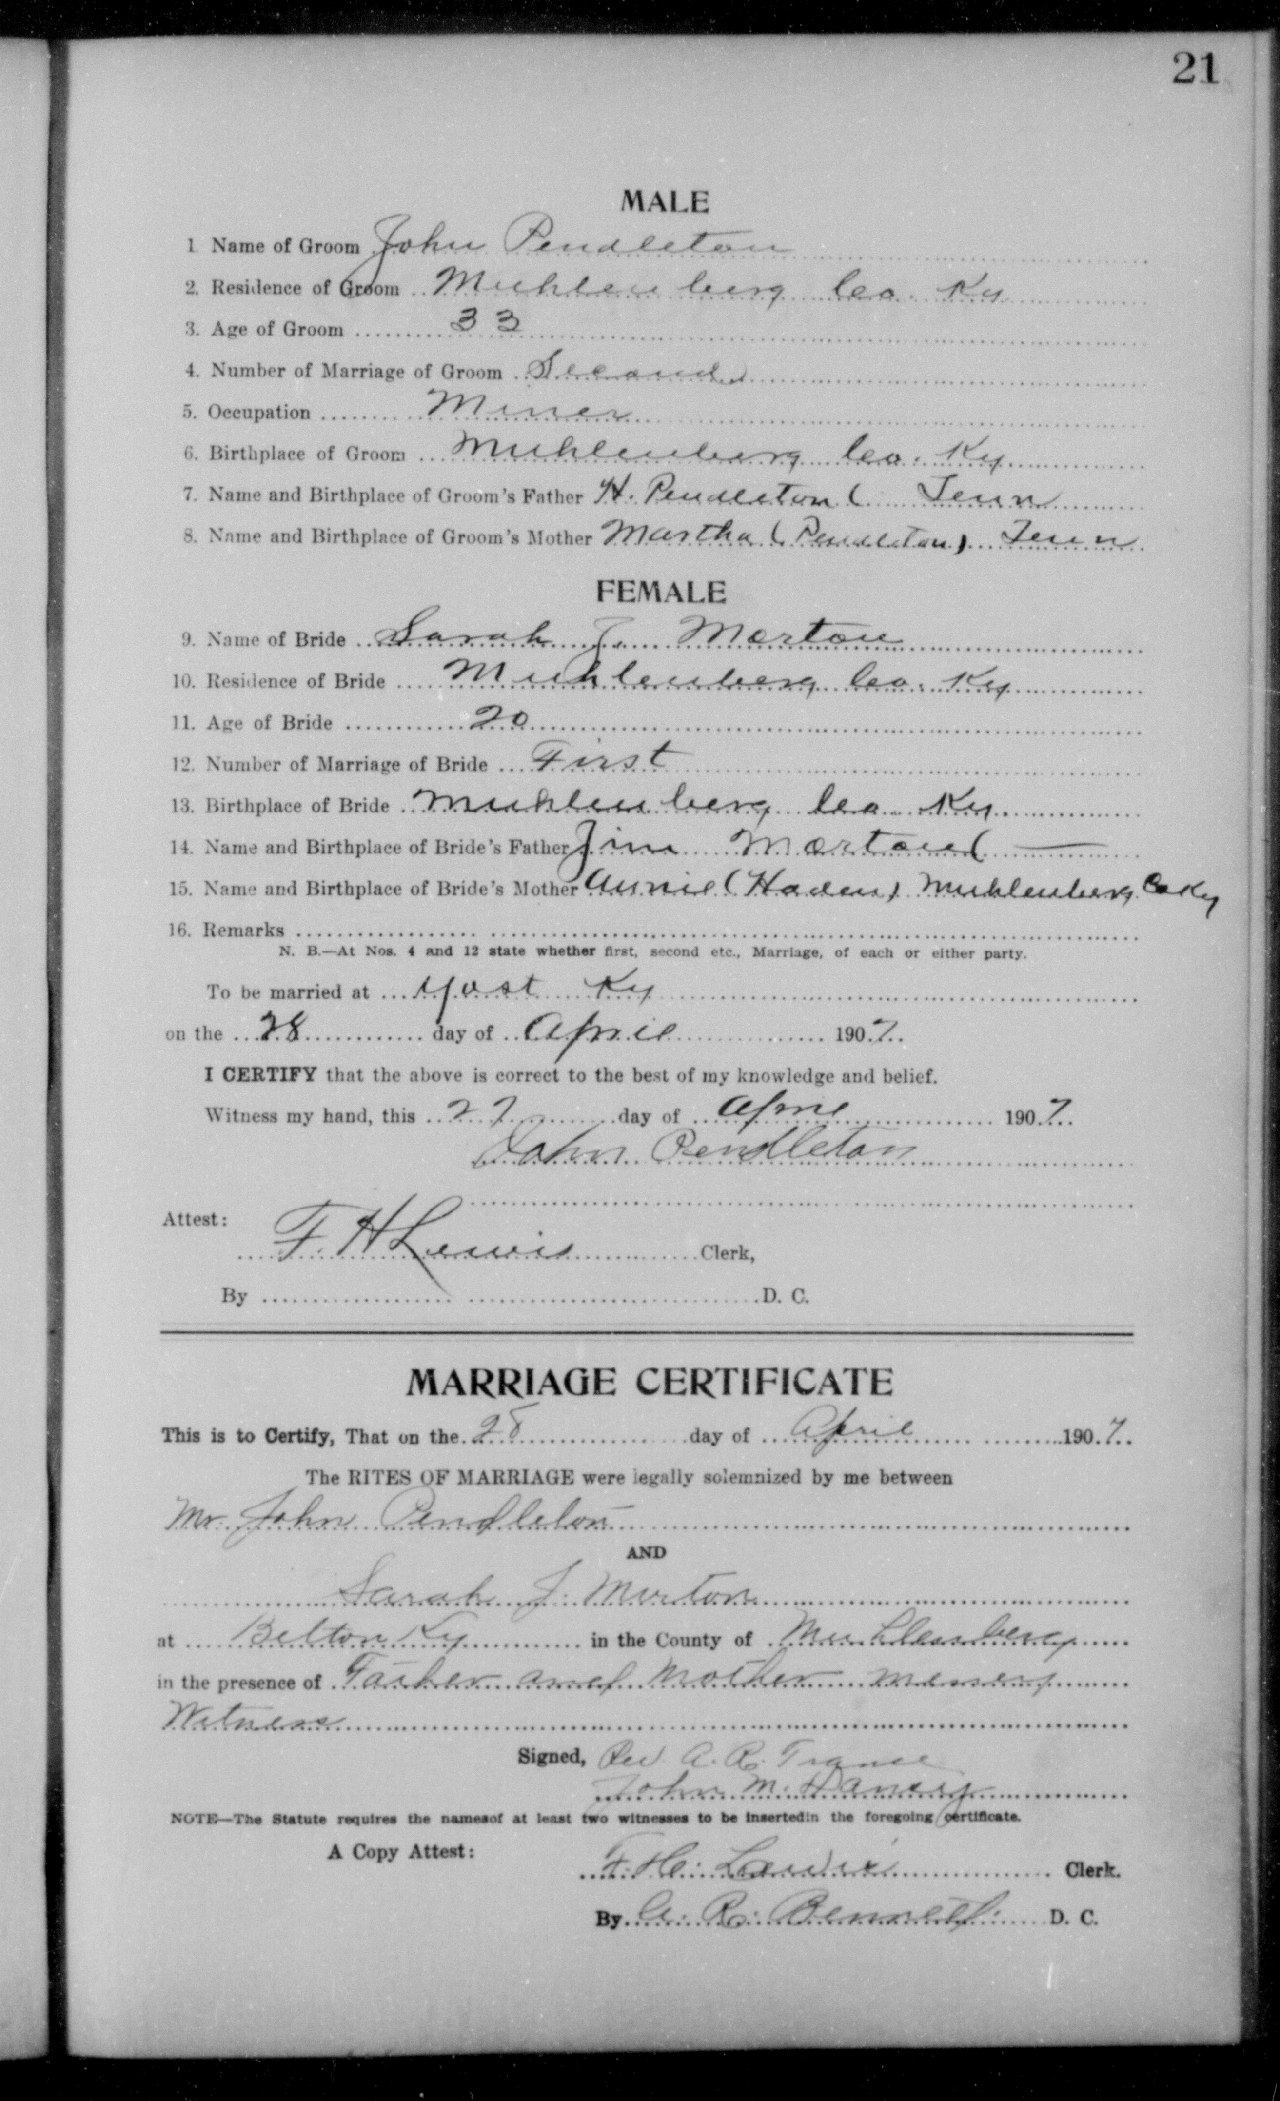 21
MALE
1 Name of Groom John Pendleton
2. Residence of Groom Muhlenberg Co. Ky
3. Age of Groom 33
4. Number of Marriage of Groom Second
5. Occupation Miner
6. Birthplace of Groom Muhlenberg Co. Ky
7. Name and Birthplace of Groom's Father H. Pendleton ( Tenn
8. Name and Birthplace of Groom's Mother Martha (Pendleton) Tenn
FEMALE
9. Name of Bride Sarah J. Morton
10. Residence of Bride Muhlenberg Co. Ky
11. Age of Bride 20
12. Number of Marriage of Bride First
13. Birthplace of Bride Muhlenberg Co. Ky
14. Name and Birthplace of Bride's Father Jim Morton ( —
15. Name and Birthplace of Bride's Mother Annie (Haden) Muhlenberg Co Ky
16. Remarks
N. B.—At Nos. 4 and 12 state whether first, second etc., Marriage, of each or either party.
To be married at Yost Ky
on the 28 day of April 1907.
I CERTIFY that the above is correct to the best of my knowledge and belief.
Witness my hand, this 27 day of April 1907.
John Pendleton
Attest:
F. H Lewis Clerk,
By D. C.
MARRIAGE CERTIFICATE
This is to Certify, That on the 28 day of April 1907.
The RITES OF MARRIAGE were legally solemnized by me between
Mr. John Pendleton
AND
Sarah J. Morton
at Belton Ky in the County of Muhlenberg
in the presence of Father and Mother
Witness
Signed, Rev. A. R.
John M.
NOTE—The Statute requires the namesof at least two witnesses to be insertedin the foregoing certificate.
A Copy Attest:
F. H. Lewis Clerk.
By A. R. Bennett. D. C.